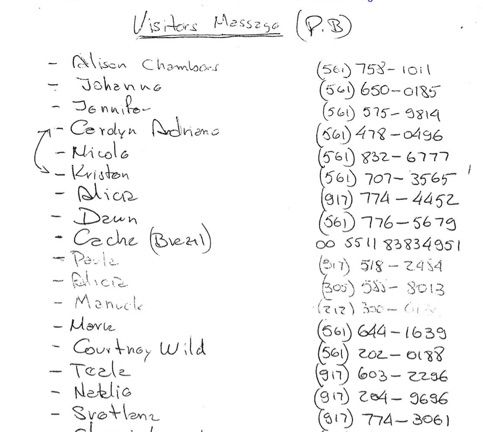 Visitors Massage (P.B)
- Alison Chambers (561) 758-1011
- Johanna (561) 650-0185
- Jennifer (561) 575-9814
- Carolyn Adriano (561) 478-0496
- Nicole (561) 832-6777
- Kristen (561) 707-3565
- Alicia (917) 774-4452
- Dawn (561) 776-5679
- Cache (Brezil) 00 5511 83834951
- Paula (917) 518-2484
- Alicia (305) 8013
- Manuela (212)
- Marie (561) 644-1639
- Courtney Wild (561) 202-0188
- Teala (917) 603-2296
- Natalia (917) 204-9696
- Svetlana (917) 774-3061